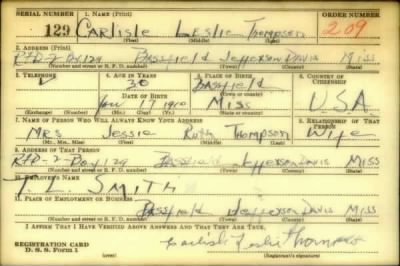 SERIAL NUMBER 1. NAME (Print) ORDER NUMBER
129 CARLISLE LESLIE THOMPSON 209
(First) (Middle) (Last)
2. ADDRESS (Print)
RFD-2-Box 129 Bassfield Jefferson Davis Miss
(Number and street or R. F. D. number) (Town) (County) (State)
3. TELEPHONE 4. AGE IN YEARS 5. PLACE OF BIRTH 6. COUNTRY OF CITIZENSHIP
30 Bassfield
DATE OF BIRTH (Town or county)
17 1910 Miss U.S.A.
(Exchange) (Number) (Mo.) (Day) (Yr.) (State or country)
7. NAME OF PERSON WHO WILL ALWAYS KNOW YOUR ADDRESS 8. RELATIONSHIP OF THAT PERSON
Mrs Jessie Ruth Thompson Wife
(Mr., Mrs., Miss) (First) (Middle) (Last)
9. ADDRESS OF THAT PERSON
RFD-2-Box 129 Bassfield Jefferson Davis Miss
(Number and street or R. F. D. number) (Town) (County) (State)
10. EMPLOYER'S NAME
T. L. SMITH
11. PLACE OF EMPLOYMENT OR BUSINESS
Bassfield Jefferson Davis Miss
(Number and street or R. F. D. number) (Town) (County) (State)
I AFFIRM THAT I HAVE VERIFIED ABOVE ANSWERS AND THAT THEY ARE TRUE.
REGISTRATION CARD
D. S. S. Form 1 Carlisle Leslie Thompson
(Registrant's signature)